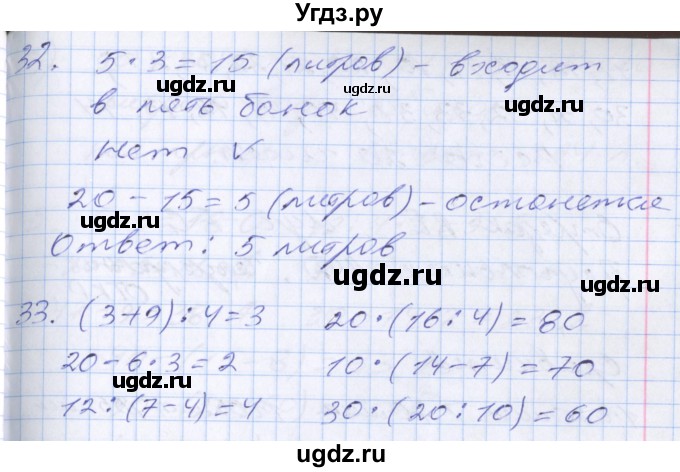 Угдз.ру
32. 5 · 3 = 15 (литров) – входит
ugdz.ru ugdz.ru ugdz.ru
в пять банок
нет √
20 – 15 = 5 (литров) – останется
ugdz.ru ugdz.ru
Ответ: 5 литров
ugdz.ru ugdz.ru
33. (3+9) : 4 = 3 20 · (16 : 4) = 80
20 – 6 · 3 = 2 10 · (14 – 7) = 70
ugdz.ru ugdz.ru
12 : (7 – 4) = 4 30 · (20 : 10) = 60
ugdz.ru ugdz.ru